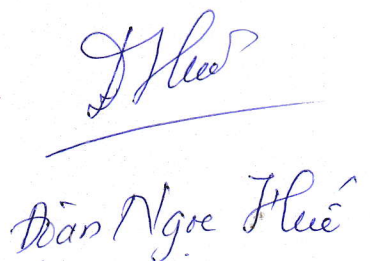 ĐHuế
Đoàn Ngọc Huế